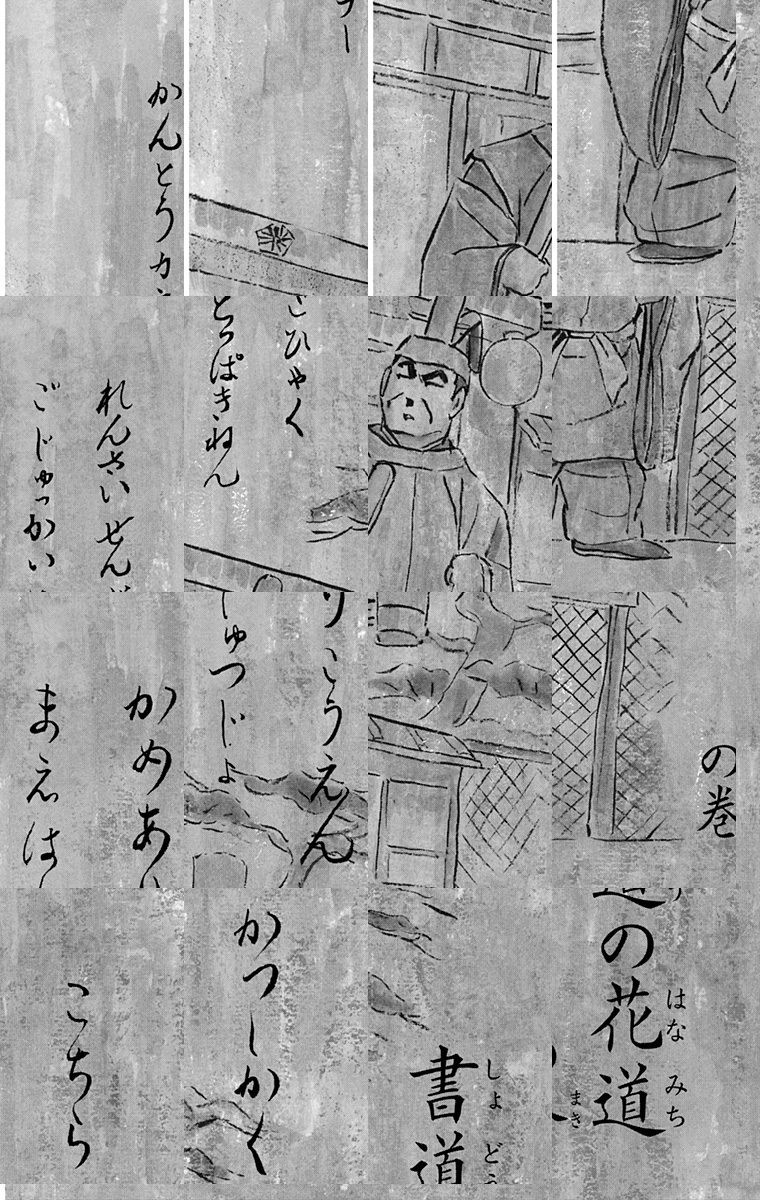 かんとう
れんさいせん
ごじゅっかい
ひゃく
とっぱきねん
かめあ
まえは
りこうえん
しゅつじょ
の巻
こちら
かつしかく
書道
しょどう
の花道
はなみち
まき